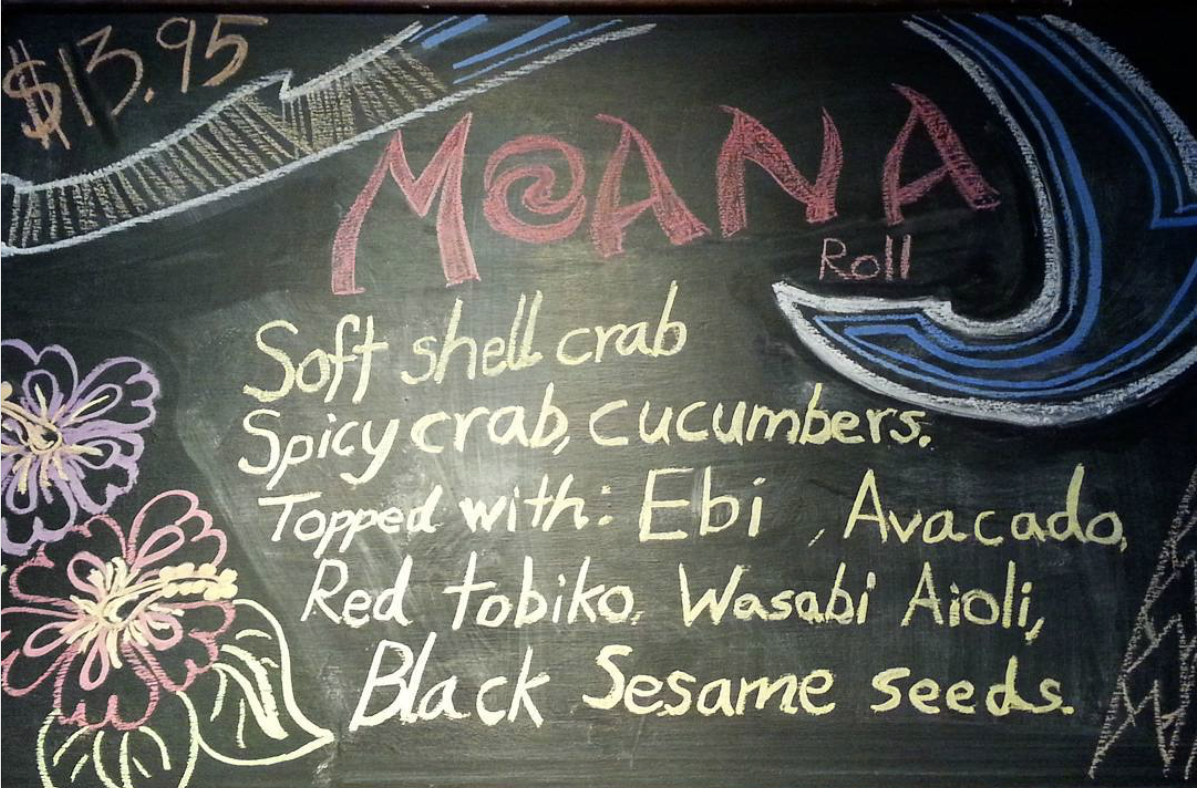 $13.95
MOANA
Roll
Soft shell crab
Spicy crab, cucumbers.
Topped with: Ebi , Avacado,
Red tobiko, Wasabi Aioli,
Black Sesame seeds.